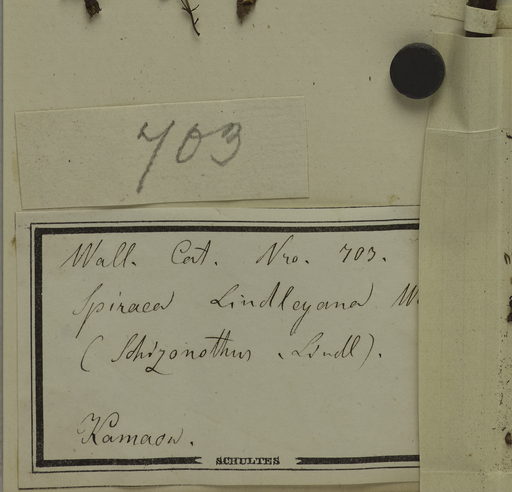 703
Wall. Cat. Nro. 703.
Spiraea Lindleyana W
(Schizonothus Lindl).
Kamaon.
SCHULTES